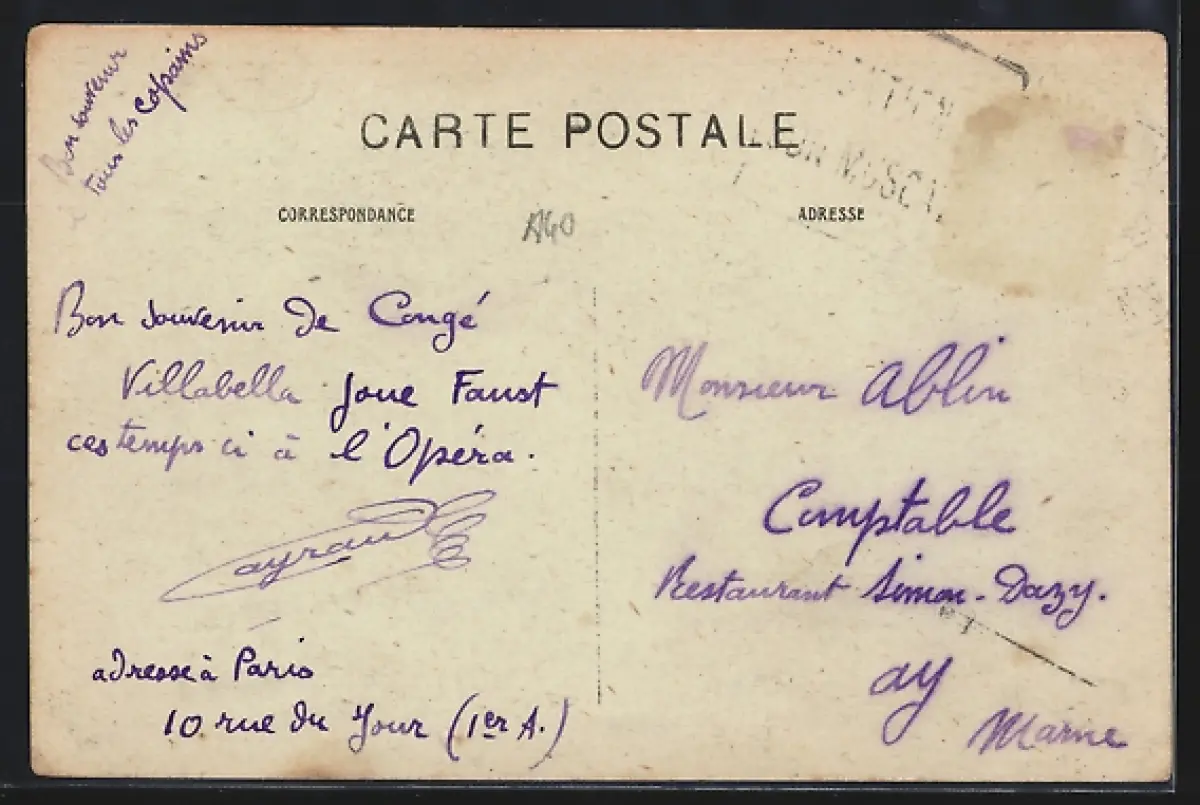 Bon souvenir
tous les copains
CARTE POSTALE
CORRESPONDANCE
A40
ADRESSE
Bon souvenir de Congé
Villabella joue Faust
ces temps ci à l'Opéra.
adresse à Paris
10 rue du Jour (1er A.)
Monsieur Ablin
Comptable
Restaurant Simon-Dazy.
ay
Marne